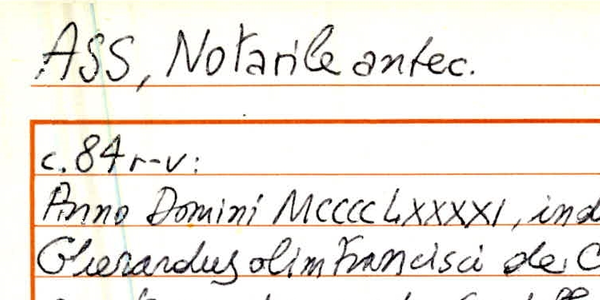 ASS, Notarile antec.
c. 84 r-v:
Anno Domini MCCCCLXXXXI, ind
Gherardus olim Francisci de C